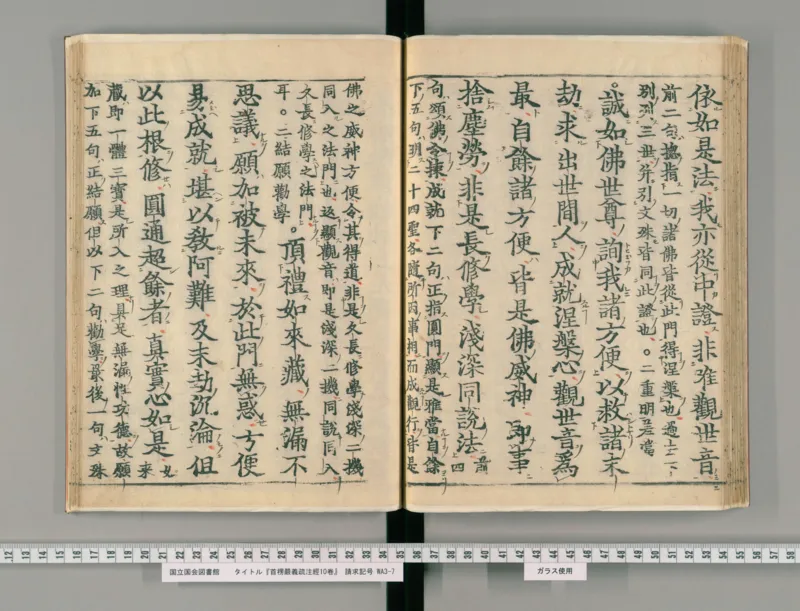 依如是法。我亦從中證 非唯觀世音
前二句揔指一切諸佛皆從此門得涅槃也過上二下
別列三世幷引文殊皆同此證也。二重明是當
誠如佛世尊 詢我諸方便 以救諸末
劫 求出世間人 成就涅槃心 觀世音爲
最 自餘諸方便 皆是佛威神 即事
捨塵勞 非是長修學 淺深同說法 前四
句頌佛令揀成就下二句正指圓門顯是唯當自餘
下五句明二十四聖各隨所因事相而成觀行皆是
佛之威神方便令其得道非是久長修學淺深二機
同入之法門也返顯觀音即是淺深二機同說同入
久長修學之法門
耳。二結願勸學。頂禮如來藏 無漏不
思議 願加被未來 於此門無惑 方便
易成就 堪以敎阿難 及末劫沉淪 但
以此根修 圓通超餘者 眞實心如是 來
藏即一體三寶是所入之理具足無漏性功德故願
加下五句正結願但以下二句勸學最後一句文殊
国立国会図書館 タイトル『首楞嚴義疏注經10巻』 請求記号 WA3-7
ガラス使用